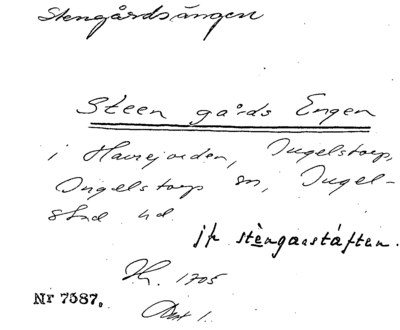 Stengårdsängen
Steen gårds Engen
i Havrejorden, Ingelstorp,
Ingelstorp sn, Ingel-
stad hd.
jfr stèngarstáften.
1705
Nr 7587.
Akt 1.